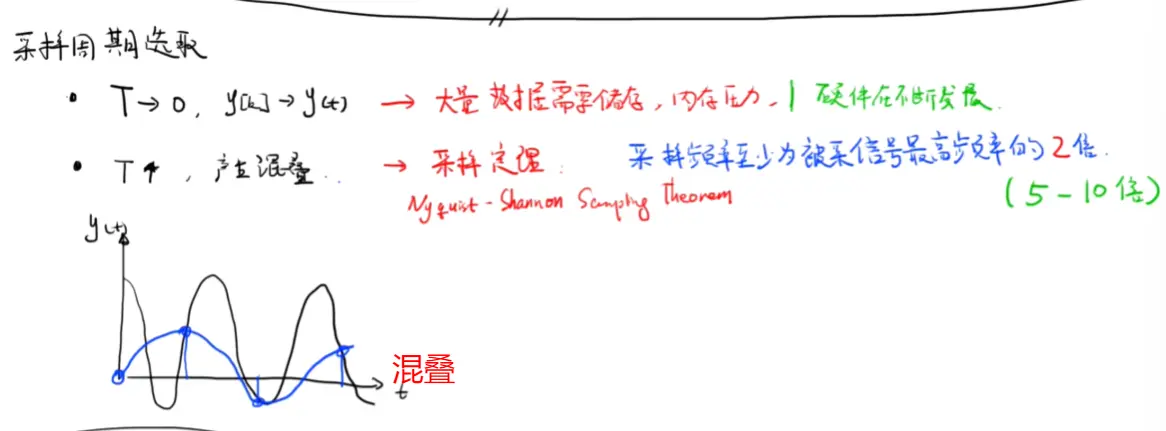 采样周期选取
• T→0, y[k]→y(t) → 大量数据需要储存,内存压力, | 硬件在不断发展.
• T↑, 产生混叠.. → 采样定理. 采样频率至少为被采信号最高频率的2倍.
Nyquist-Shannon Sampling Theorem (5-10倍)
y(t)
混叠
t